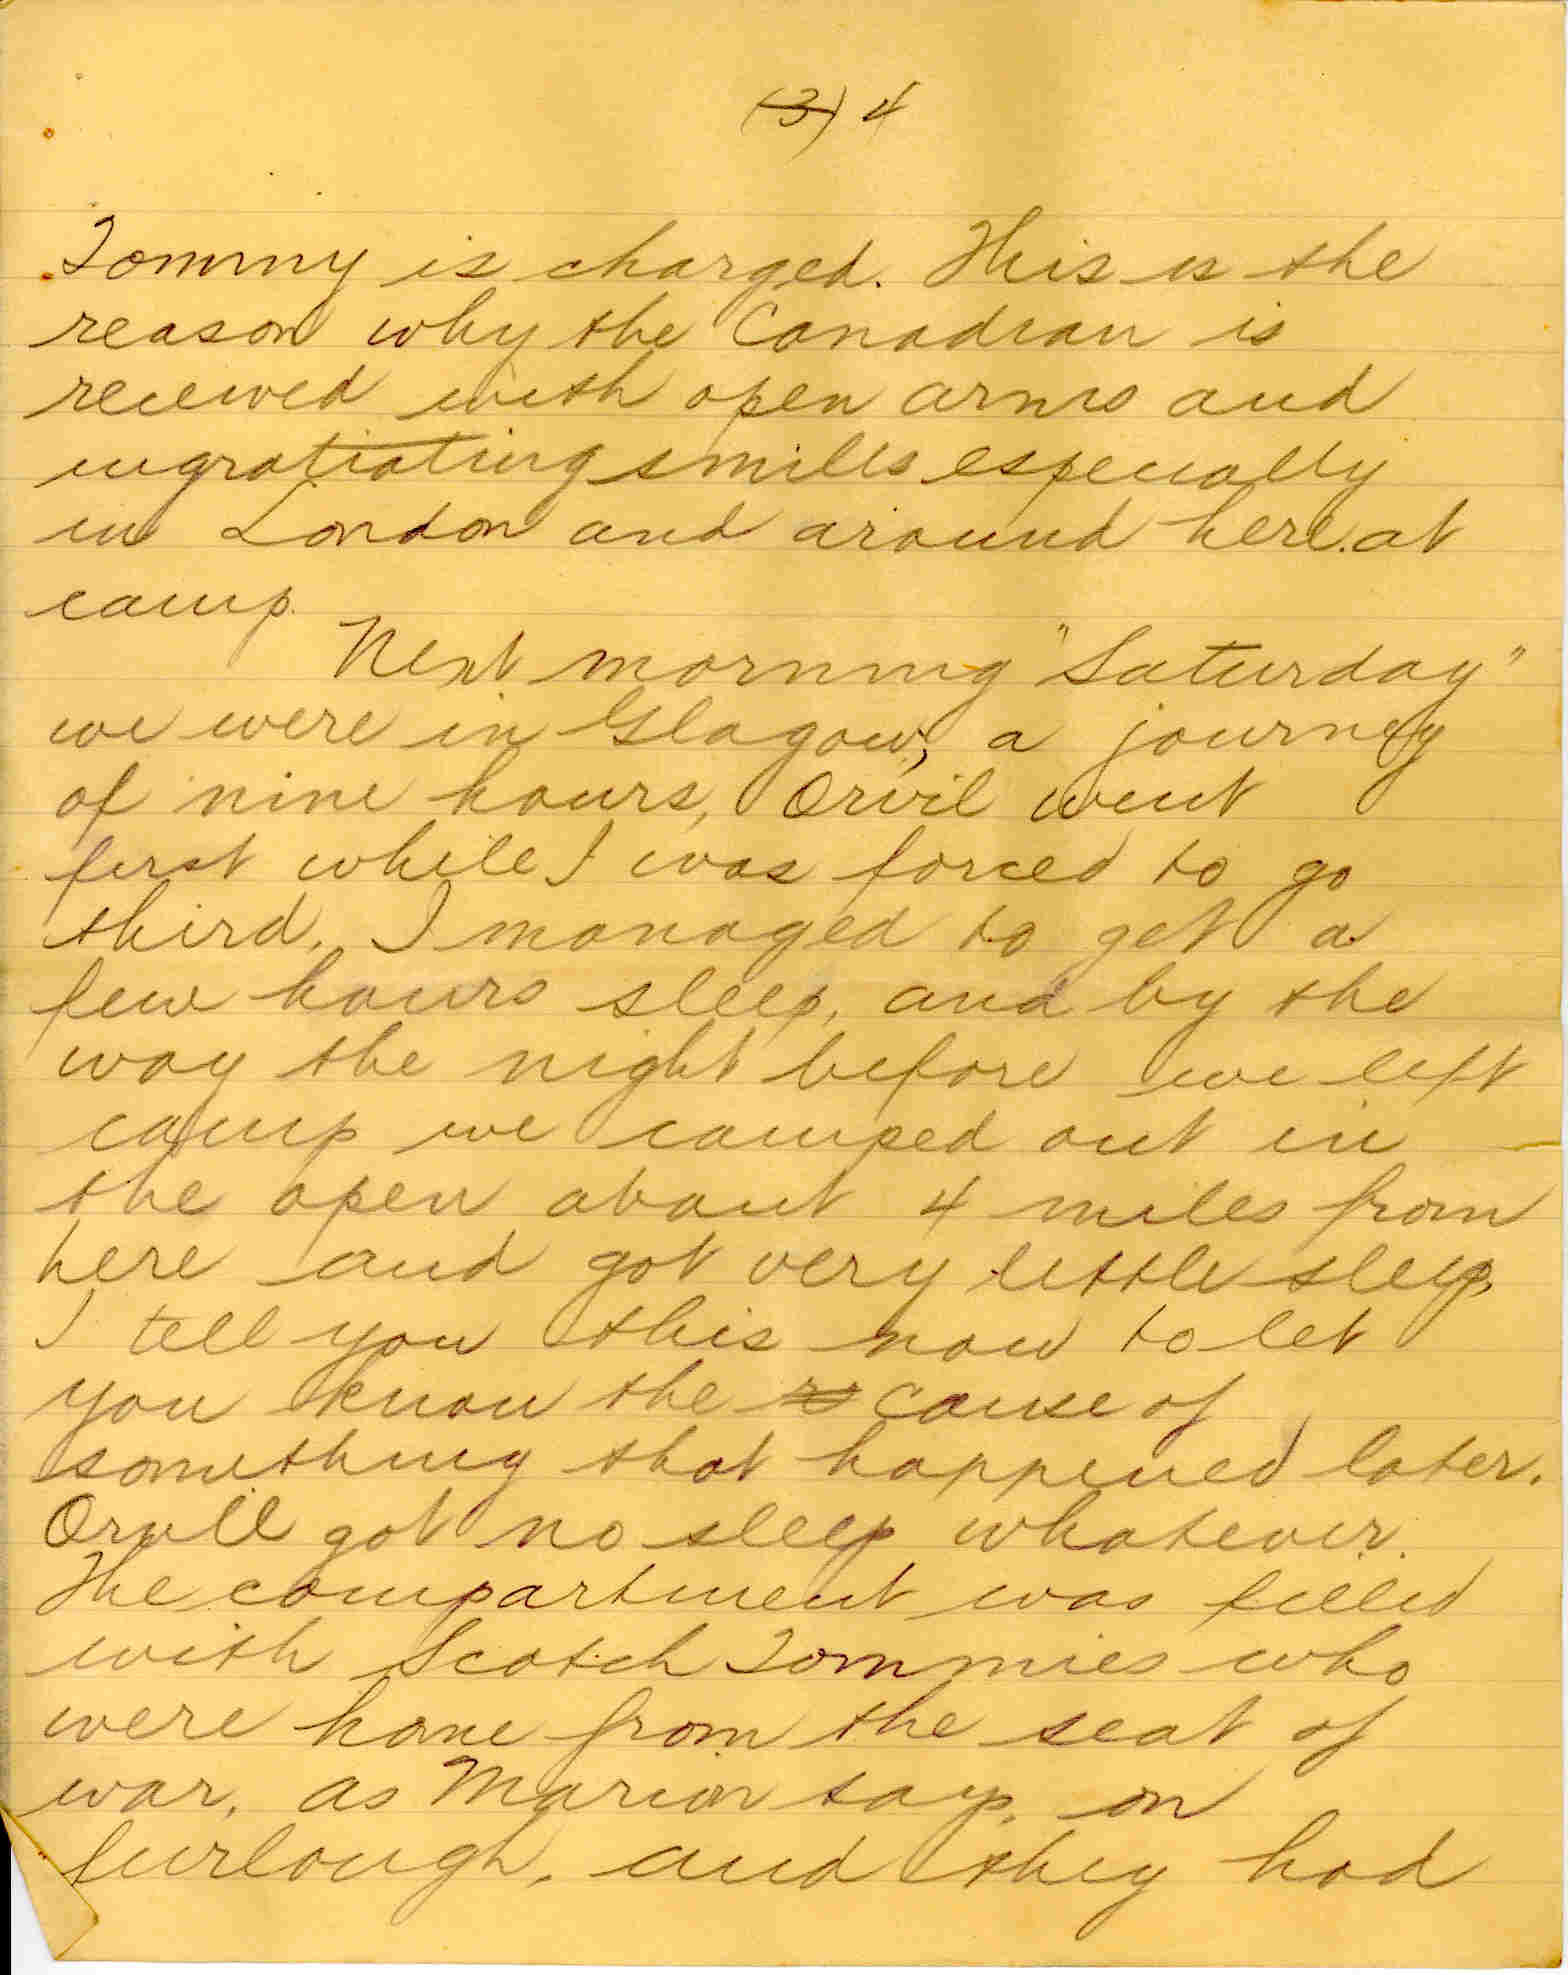 (3) 4
Tommy is charged. This is the
reason why the Canadian is
recieved with open arms and
ingratiating smiles especially
in London and around here at
camp.
Next morning "Saturday"
we were in Glagow, a journey
of nine hours, Orvil went
first while I was forced to go
third. I managed to get a
few hours sleep, and by the
way the night before we left
camp we camped out in
the open about 4 miles from
here and got very little sleep,
I tell you this now to let
you know the cause of
something that happened later.
Orvill got no sleep whatever.
The compartment was filled
with Scotch Tommies who
were home from the seat of
war, as Marion says, on
furlough, and they had